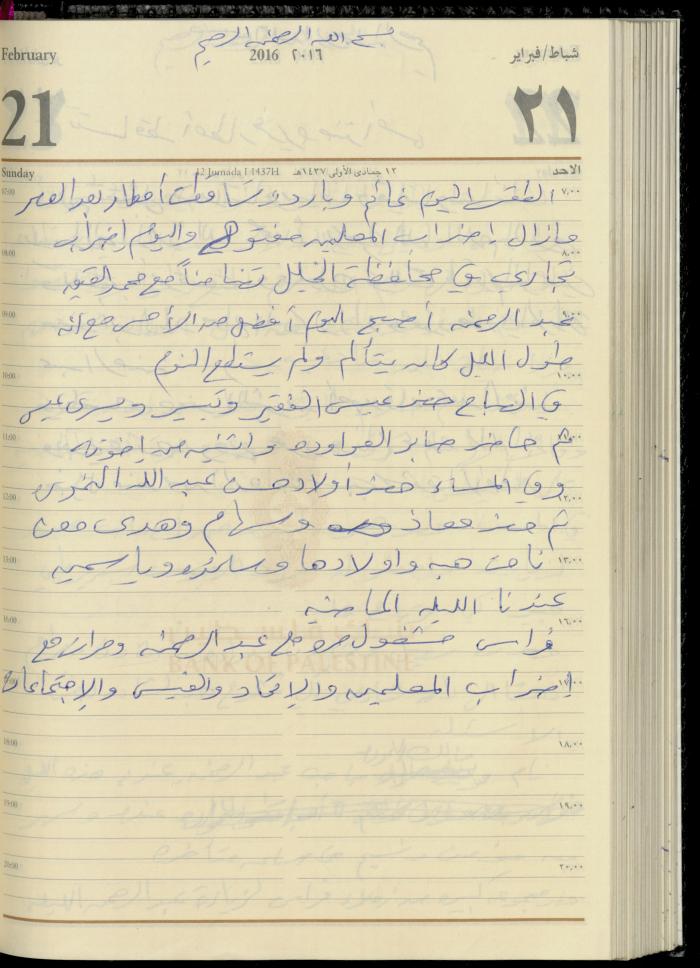 بسم الله الرحمن الرحيم
February 2016 ٢٠١٦ شباط/فبراير
21 ٢١
Sunday 12 Jumada I 1437H ١٢ جمادى الأولى ١٤٣٧هـ الاحد
الطقس اليوم غائم وبارد وتساقطت أمطار بعد العصر
مازال إضراب المعلمين مفتوح واليوم إضراب
تجاري في محافظة الخليل تضامناً مع محمد القيق
عبد الرحمن أصبح اليوم أفضل من الأمس مع انه
طول الليل كان يتألم ولم يستطع النوم
في الصباح حضر عيسى الفقير وتيسير ويسرى عيسى
ثم حاضر صابر العواوده واثنين من إخوته
وفي المساء حضر أولاد حسن عبد الله
ثم حضر معاذ وسهام وهدى معن
نامت هبه واولادها وياسمين
عندنا الليله الماضيه
فراس مشغول مع عبد الرحمن ومرات مع
إضراب المعلمين والاتحاد والفيس والاجتماعات
BANK OF PALESTINE
07:00 ٧,٠٠
08:00 ٨,٠٠
09:00 ٩,٠٠
10:00 ١٠,٠٠
11:00
12:00 ١٢,٠٠
13:00 ١٣,٠٠
16:00 ١٦,٠٠
١٧,٠٠
18:00 ١٨,٠٠
19:00 ١٩,٠٠
20:00 ٢٠,٠٠